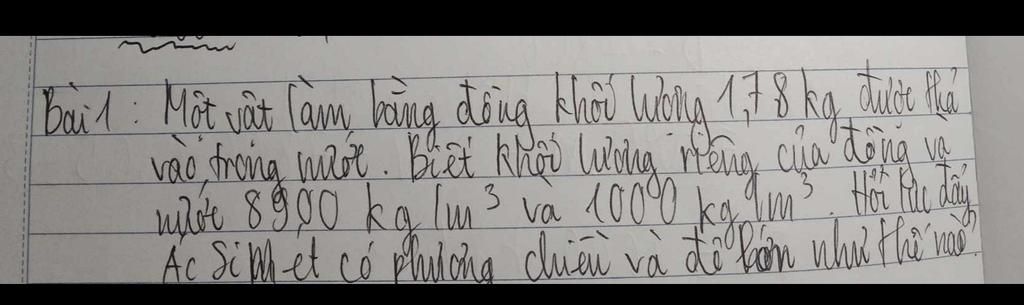 Bài 1: Một vật làm bằng đồng khối lượng 1,78 kg được thả
vào trong nước. Biết khối lượng riêng của đồng và
nước 8900 kg/m³ và 1000 kg/m³. Hỏi lực đẩy
Ác Si mét có phương chiều và độ lớn như thế nào?